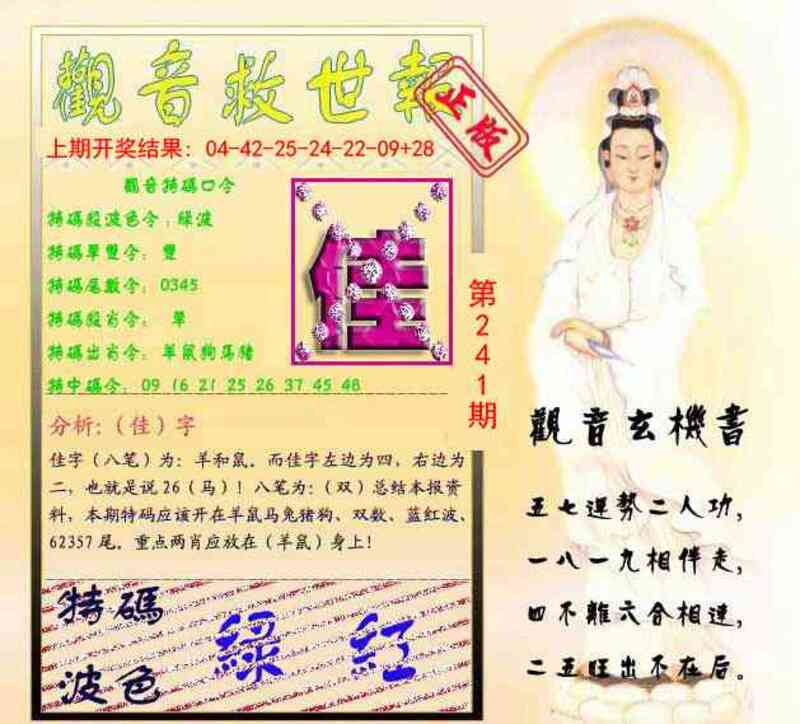 觀音救世報
正版
上期开奖结果：04-42-25-24-22-09+28
觀音特碼口令
特碼殺波色令：綠波
特碼單雙令：雙
特碼尾數令：0345
特碼殺肖令：單
特碼出肖令：羊鼠狗馬豬
特中碼令：09 16 21 25 26 37 45 48
佳
第241期
分析:（佳）字
佳字（八笔）为：羊和鼠．而佳字左边为四，右边为
二，也就是说26（马）！八笔为：（双）总结本报资
料，本期特码应该开在羊鼠马兔猪狗、双数、蓝红波、
62357尾．重点两肖应放在（羊鼠）身上！
特碼
波色
綠 紅
觀音玄機書
五七運勢二人功，
一八一九相伴走，
四不離六合相連，
二五旺出不在后。